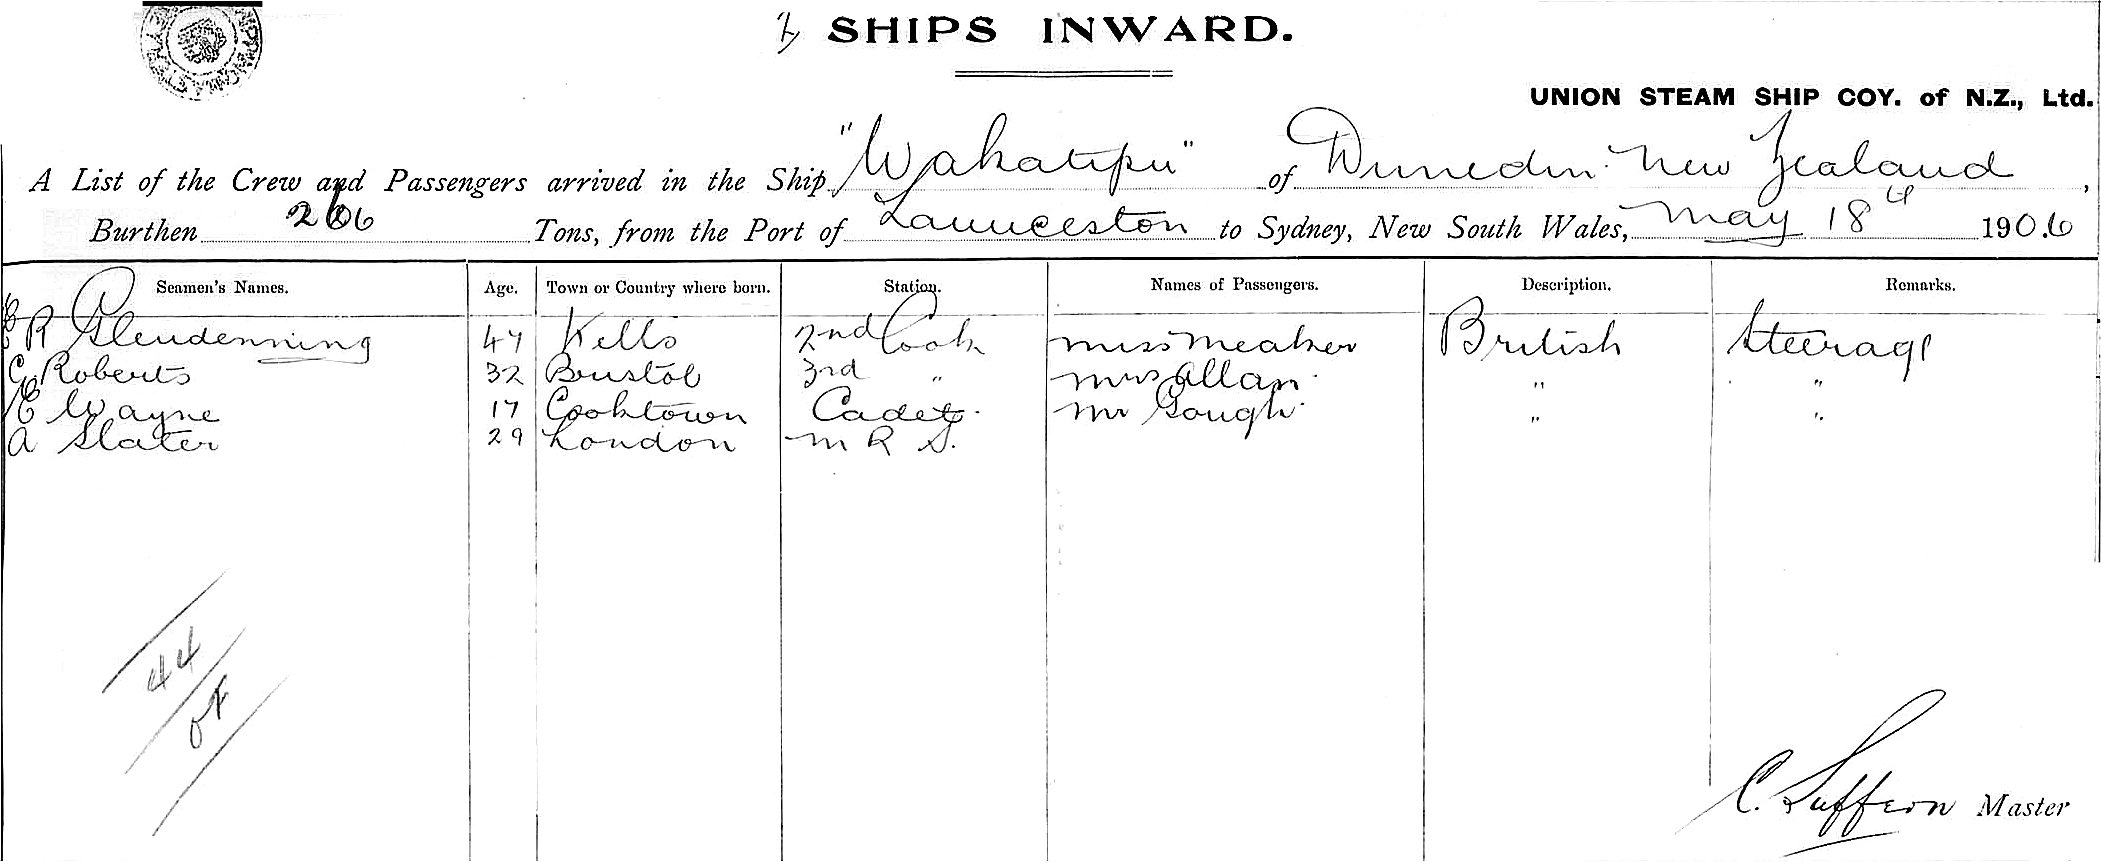 SHIPS INWARD.
UNION STEAM SHIP COY. of N.Z., Ltd.
A List of the Crew and Passengers arrived in the Ship "Wakatipu" of Dunedin New Zealand,
Burthen Tons, from the Port of Launceston to Sydney, New South Wales, May 18th 1906
Seamen's Names. Age. Town or Country where born. Station. Names of Passengers. Description. Remarks.
R Glendenning 47 Kells 2nd Cook Miss Meaker British Steerage
C Roberts 32 Bristol 3rd " Mrs Allan " "
E Wayne 17 Cooktown Cadet Mr Gough " "
A Slater 29 London M R S.
44
C. Suffern Master